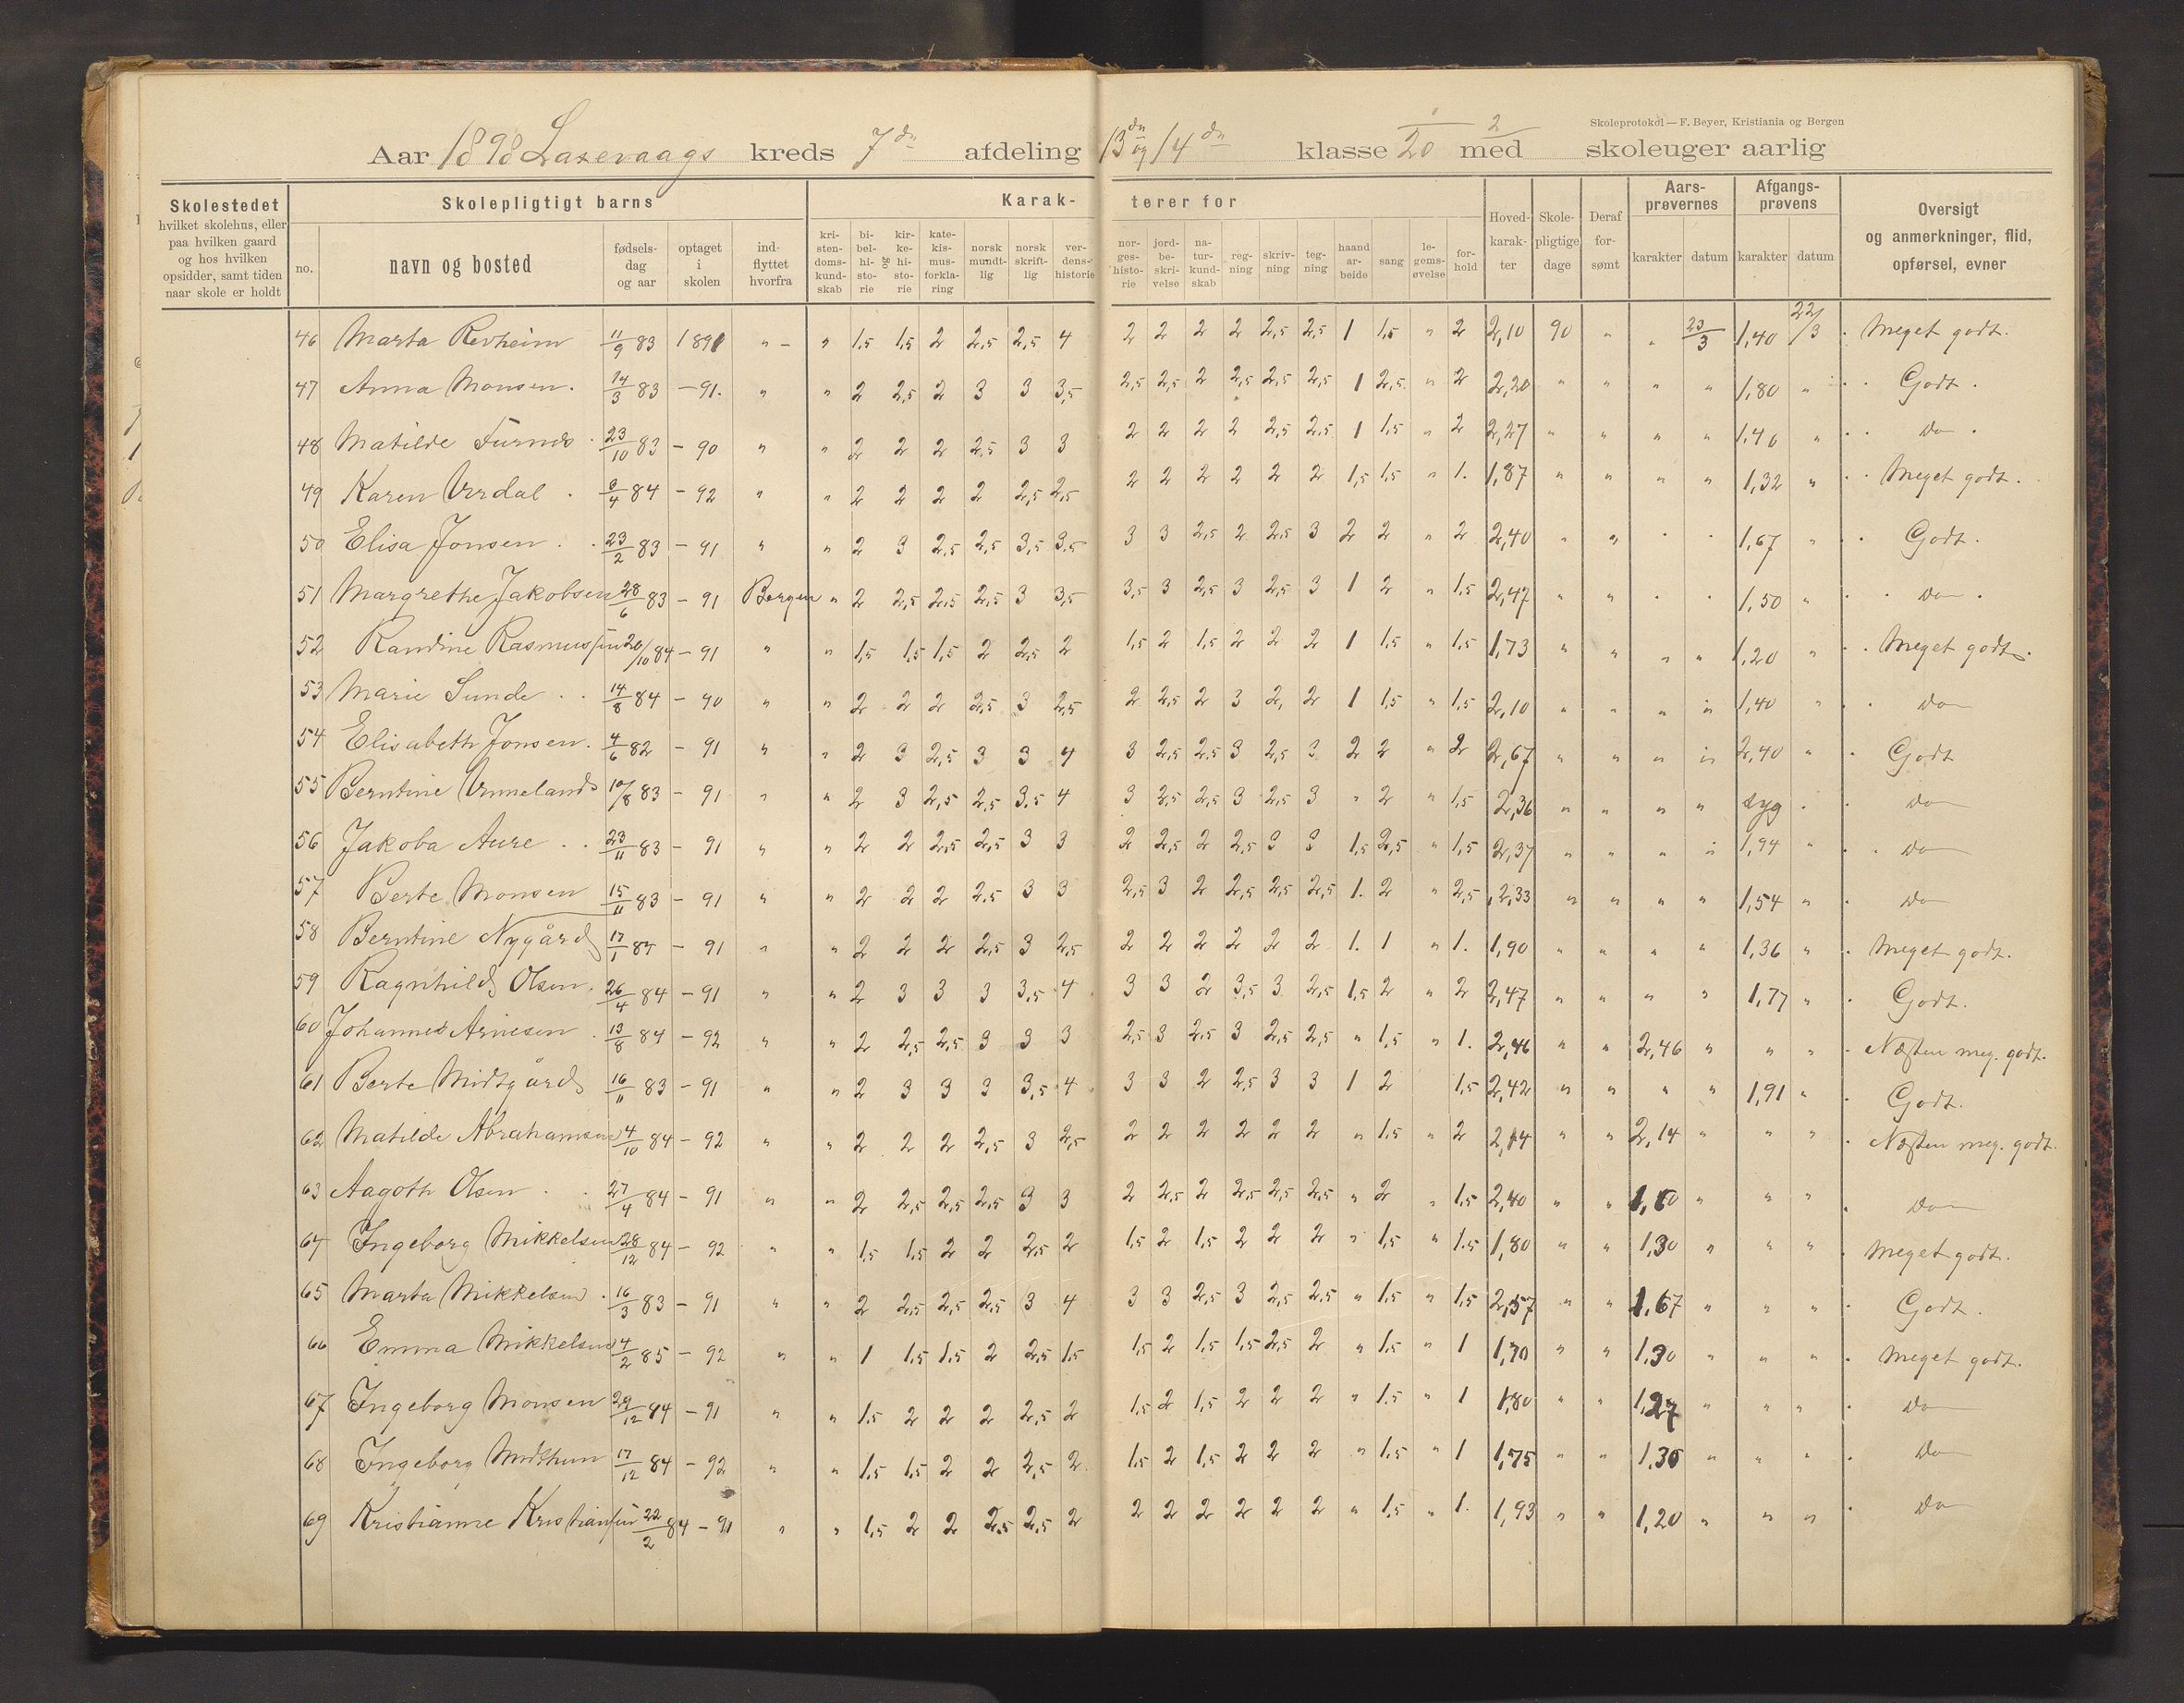 Skoleprotokol — F. Beyer, Kristiania og Bergen
Aar 1898 Laxevaags kreds 7de afdeling 13de og 14de klasse 20 med 2 skoleuger aarlig
Skolestedet hvilket skolehus, eller paa hvilken gaard og hos hvilken opsidder, samt tiden naar skole er holdt
Skolepligtigt barns
no. navn og bosted fødsels-dag og aar optaget i skolen ind-flyttet hvorfra
Karak-terer for
kri-sten-doms-kund-skab bi-bel-hi-sto-rie kir-ke-hi-sto-rie kate-kis-mus-forkla-ring norsk mundt-lig norsk skrift-lig ver-dens-historie
nor-ges-histo-rie jord-be-skri-velse na-tur-kund-skab reg-ning skriv-ning teg-ning haand ar-beide sang le-gems-øvelse for-hold
Hoved-karak-ter Skole-pligtige dage Deraf for-sømt
Aars-prøvernes karakter datum
Afgangs-prøvens karakter datum
Oversigt og anmerkninger, flid, opførsel, evner
46 Marta Revheim 11/9 83 1891 " – " 1,5 1,5 2 2,5 2,5 4 2 2 2 2 2,5 2,5 1 1,5 " 2 2,10 90 " " 23/3 1,40 22/3 Meget godt.
47 Anna Monsen. 14/3 83 – 91. " " 2 2,5 2 3 3 3,5 2,5 2,5 2 2,5 2,5 2,5 1 2,5 " 2 2,20 " " " " 1,80 " Godt.
48 Matilde Furnes 23/10 83 – 90 " " 2 2 2 2,5 3 3 2 2 2 2 2,5 2,5 1 1,5 " 2 2,27 " " " " 1,46 " Do.
49 Karen Urdal. 3/4 84 – 92 " " 2 2 2 2 2,5 2,5 2 2 2 2 2 2 1,5 1,5 " 1. 1,87 " " " " 1,32 " Meget godt.
50 Elisa Jonsen. 23/2 83 – 91 " " 2 3 2,5 2,5 3,5 3,5 3 3 2,5 2 2,5 3 2 2 " 2 2,40 " " " " 1,67 " Godt.
51 Margrethe Jakobsen 28/6 83 – 91 Bergen " 2 2,5 2,5 2,5 3 3,5 3,5 3 2,5 3 2,5 3 1 2 " 1,5 2,47 " " " " 1,50 " Do.
52 Randine Rasmussen 20/10 84 – 91 " " 1,5 1,5 1,5 2 2,5 2 1,5 2 1,5 2 2 2 1 1,5 " 1,5 1,73 " " " " 1,20 " Meget godt.
53 Marie Sunde 14/8 84 – 90 " " 2 2 2 2,5 3 2,5 2 2,5 2 3 2, 2 1 1,5 " 1,5 2,10 " " " " 1,40 " Do
54 Elisabeth Jonsen. 4/6 82 – 91 " " 2 3 2,5 3 3 4 3 2,5 2,5 3 2,5 3 2 2 " 2 2,67 " " " " 2,40 " Godt
55 Berntine Unneland 10/8 83 – 91 " " 2 3 2,5 2,5 3,5 4 3 2,5 2,5 3 2,5 3 " 2 " 1,5 2,36 " " " " syg Do
56 Jakoba Aure 23/11 83 – 91 " " 2 2 2,5 2,5 3 3 2 2,5 2 2,5 3 3 1,5 2,5 " 1,5 2,37 " " " " 1,94 " Do
57 Berte Monsen 15/11 83 – 91 " " 2 2 2 2,5 3 3 2,5 3 2 2,5 2,5 2,5 1. 2 " 2,5 2,33 " " " " 1,54 " Do
58 Berntine Nygård 17/1 84 – 91 " " 2 2 2 2,5 3 2,5 2 2 2 2 2 2 1. 1 " 1. 1,90 " " " " 1,36 " Meget godt.
59 Ragnhild Olsen. 26/4 84 – 91 " " 2 3 3 3 3,5 4 3 3 2 3,5 3 2,5 1,5 2 " 2 2,47 " " " " 1,77 " Godt.
60 Johannes Arnesen 13/8 84 – 92 " " 2 2,5 2,5 3 3 3 2,5 3 2,5 3 2,5 2,5 " 1,5 " 1. 2,46 " " 2,46 " " " Næsten meg. godt.
61 Berte Midtgård 16/11 83 – 91 " " 2 3 3 3 3,5 4 3 3 2 2,5 3 3 1 2 1,5 2,42 " " " " 1,91 " Godt.
62 Matilde Abrahamsen 4/10 84 – 92 " " 2 2 2 2,5 3 2,5 2 2 2 2 2 2 " 1,5 " 2 2,14 " " 2,14 " " " Næsten meg. godt.
63 Aagoth Olsen 27/4 84 – 91 " " 2 2,5 2,5 2,5 3 3 2 2,5 2 2,5 2,5 2,5 " 2 " 1,5 2,40 " " 1,60 " " " Do
64 Ingeborg Mikkelsen 28/12 84 – 92 " " 1,5 1,5 2 2 2,5 2 1,5 2 1,5 2 2 2 " 1,5 " 1,5 1,80 " " 1,30 " " " Meget godt.
65 Marta Mikkelsen. 16/3 83 – 91 " " 2 2,5 2,5 2,5 3 4 3 3 2,5 3 2,5 2,5 " 1,5 " 1,5 2,57 " " 1,67 " " " Godt.
66 Emma Mikkelsen 4/2 85 – 92 " " 1 1,5 1,5 2 2,5 1,5 1,5 2 1,5 1,5 2,5 2 " 1,5 " 1 1,70 " " 1,30 " " " Meget godt.
67 Ingeborg Monsen 29/12 84 – 91 " " 1,5 2 2 2 2,5 2 1,5 2 1,5 2 2 2 " 1,5 " 1 1,80 " " 1,27 " " " Do
68 Ingeborg Midthun 17/12 84 – 92 " " 1,5 1,5 2 2 2,5 2 1,5 2 1,5 2 2 2 " 1,5 " 1 1,75 " " 1,30 " " " Do
69 Kristianne Kristiansen 22/2 84 – 91 " " 1,5 2 2 2,5 2,5 2 2 2 2 2 2 2 " 1,5 " 1. 1,93 " " 1,20 " " " Do